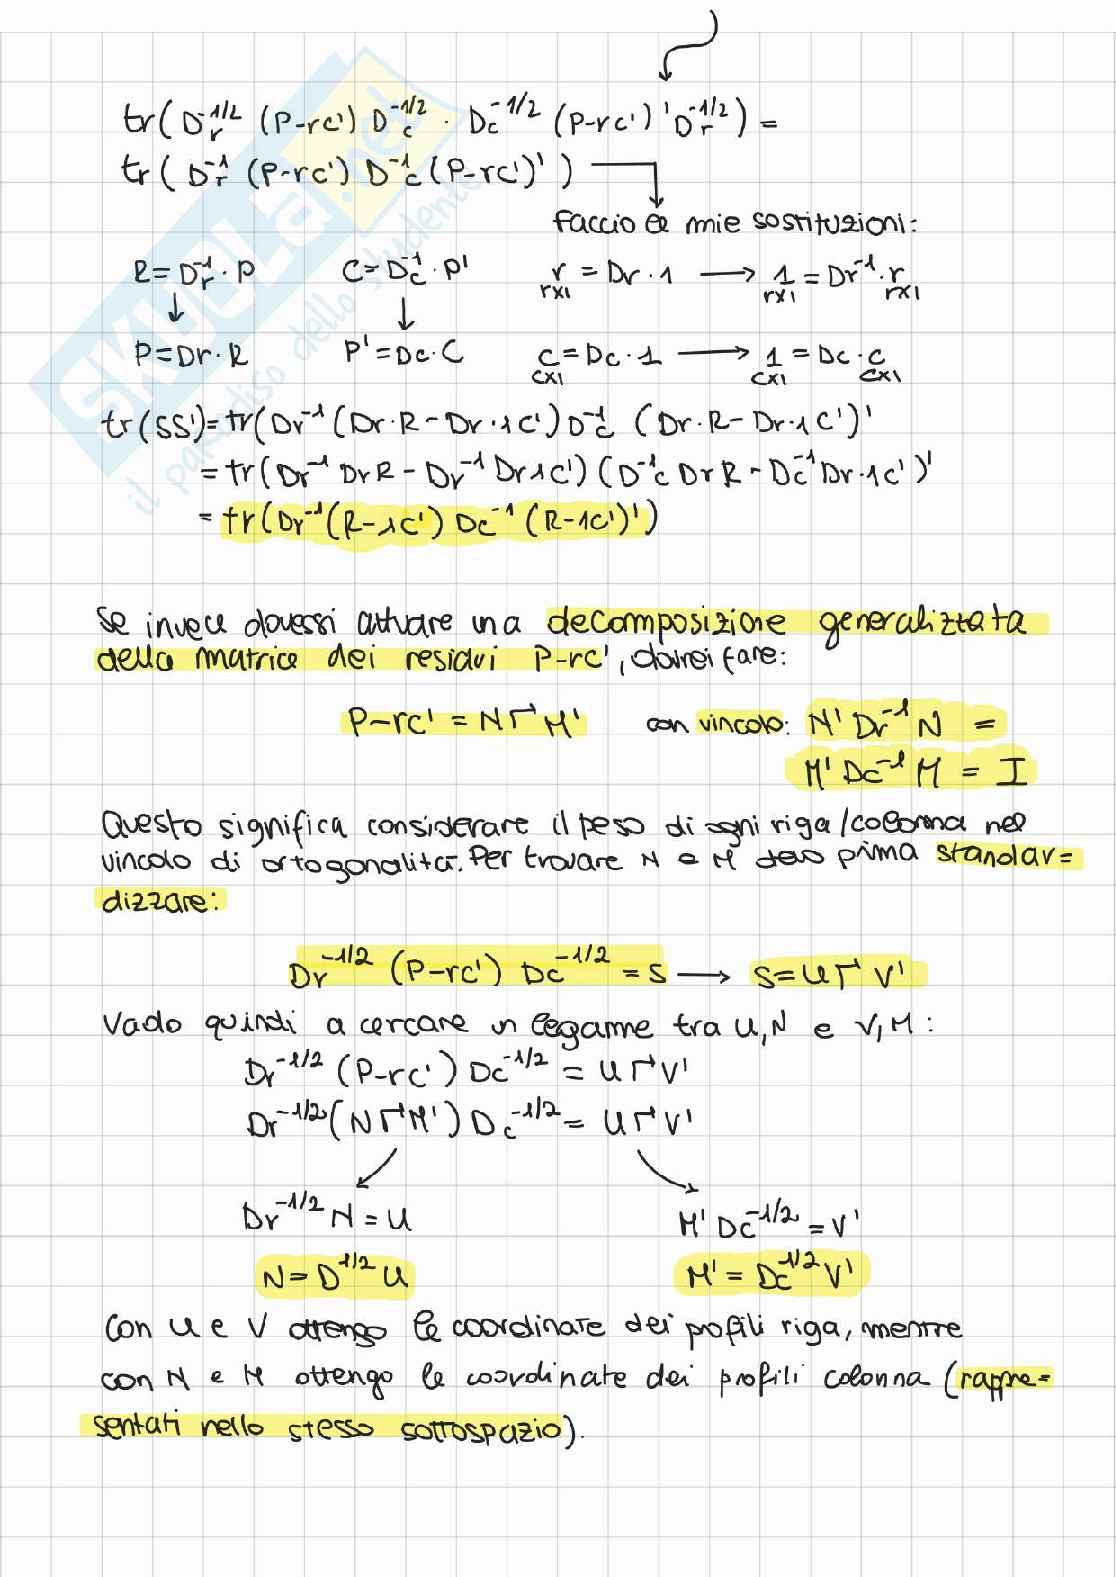 tr(Dr^-1/2 (P-rc') Dc^-1/2 · Dc^-1/2 (P-rc')' Dr^-1/2) =
tr(Dr^-1 (P-rc') Dc^-1 (P-rc')') →
faccio le mie sostituzioni:
R = Dr^-1 · P C = Dc^-1 · P' r = Dr · 1 → 1 = Dr^-1 · r
rx1 rx1 rx1
↓ ↓
P = Dr · R P' = Dc · C c = Dc · 1 → 1 = Dc · c
cx1 cx1 cx1
tr(SS') = tr(Dr^-1 (Dr · R - Dr · 1 c') Dc^-1 (Dr · R - Dr · 1 c')'
= tr(Dr^-1 Dr R - Dr^-1 Dr 1 c') (Dc^-1 Dr R - Dc^-1 Dr · 1 c')'
= tr(Dr^-1 (R-1c') Dc^-1 (R-1c')')
Se invece dovessi attuare una decomposizione generalizzata
della matrice dei residui P-rc', dovrei fare:
P-rc' = NΓM' con vincolo: N' Dr^-1 N =
M' Dc^-1 M = I
Questo significa considerare il peso di ogni riga/colonna nel
vincolo di ortogonalità. Per trovare N e M devo prima standar=
dizzare:
Dr^-1/2 (P-rc') Dc^-1/2 = S → S = UΓV'
Vado quindi a cercare un legame tra U,N e V,M:
Dr^-1/2 (P-rc') Dc^-1/2 = UΓV'
Dr^-1/2 (NΓM') Dc^-1/2 = UΓV'
Dr^-1/2 N = U M' Dc^-1/2 = V'
N = D^1/2 U M' = Dc^1/2 V'
Con U e V ottengo le coordinate dei profili riga, mentre
con N e M ottengo le coordinate dei profili colonna (rappre=
sentati nello stesso sottospazio).
SKUOLA.net
il paradiso dello studente